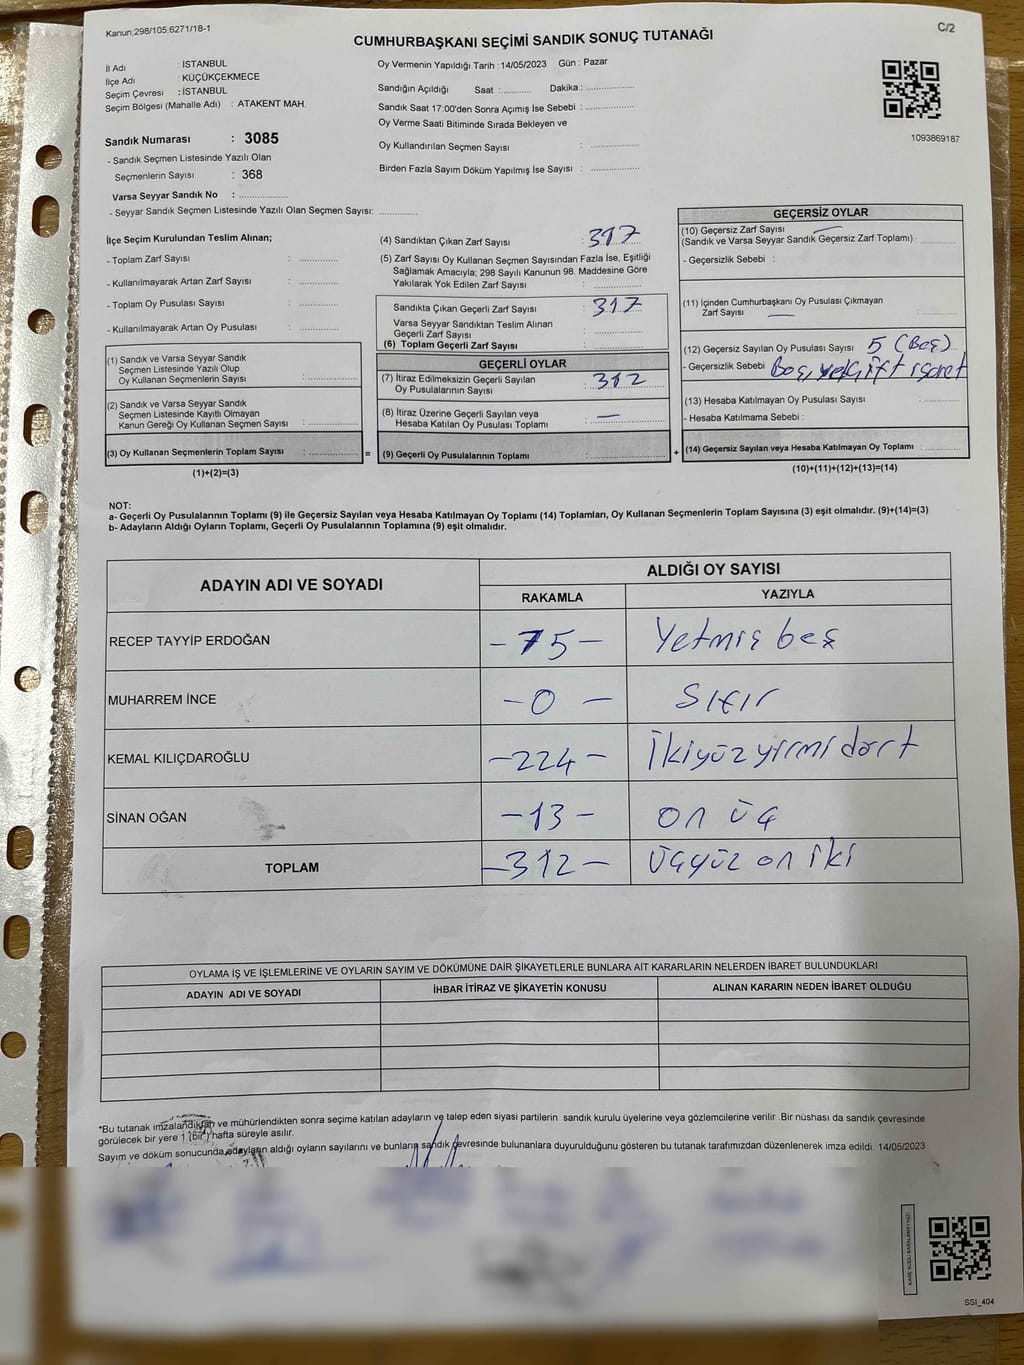 Kanun:298/105;6271/18-1
C/2
CUMHURBAŞKANI SEÇİMİ SANDIK SONUÇ TUTANAĞI
İl Adı : İSTANBUL
İlçe Adı : KÜÇÜKÇEKMECE
Seçim Çevresi : İSTANBUL
Seçim Bölgesi (Mahalle Adı) : ATAKENT MAH.
Sandık Numarası : 3085
- Sandık Seçmen Listesinde Yazılı Olan
Seçmenlerin Sayısı : 368
Varsa Seyyar Sandık No : ..............
- Seyyar Sandık Seçmen Listesinde Yazılı Olan Seçmen Sayısı: ............
Oy Vermenin Yapıldığı Tarih :14/05/2023 Gün : Pazar
Sandığın Açıldığı Saat :.......... Dakika : ..............
Sandık Saat 17:00'den Sonra Açımış İse Sebebi : ..............
Oy Verme Saati Bitiminde Sırada Bekleyen ve
Oy Kullandırılan Seçmen Sayısı : ..............
Birden Fazla Sayım Döküm Yapılmış İse Sayısı : ..............
1093869187
İlçe Seçim Kurulundan Teslim Alınan;
- Toplam Zarf Sayısı : ............
- Kullanılmayarak Artan Zarf Sayısı : ............
- Toplam Oy Pusulası Sayısı : ............
- Kullanılmayarak Artan Oy Pusulası : ............
(1) Sandık ve Varsa Seyyar Sandık
Seçmen Listesinde Yazılı Olup
Oy Kullanan Seçmenlerin Sayısı : ..............
(2) Sandık ve Varsa Seyyar Sandık
Seçmen Listesinde Kayıtlı Olmayan
Kanun Gereği Oy Kullanan Seçmen Sayısı : ..............
(3) Oy Kullanan Seçmenlerin Toplam Sayısı : .............. =
(1)+(2)=(3)
(4) Sandıktan Çıkan Zarf Sayısı : 317
(5) Zarf Sayısı Oy Kullanan Seçmen Sayısından Fazla İse, Eşitliği
Sağlamak Amacıyla; 298 Sayılı Kanunun 98. Maddesine Göre
Yakılarak Yok Edilen Zarf Sayısı : ..............
Sandıkta Çıkan Geçerli Zarf Sayısı : 317
Varsa Seyyar Sandıktan Teslim Alınan
Geçerli Zarf Sayısı : ..............
(6) Toplam Geçerli Zarf Sayısı : ..............
GEÇERLİ OYLAR
(7) İtiraz Edilmeksizin Geçerli Sayılan
Oy Pusulasının Sayısı : 312
(8) İtiraz Üzerine Geçerli Sayılan veya
Hesaba Katılan Oy Pusulası Toplamı : —
(9) Geçerli Oy Pusulalarının Toplamı : .............. +
GEÇERSİZ OYLAR
(10) Geçersiz Zarf Sayısı —
(Sandık ve Varsa Seyyar Sandık Geçersiz Zarf Toplamı) : ............
- Geçersizlik Sebebi :
(11) İçinden Cumhurbaşkanı Oy Pusulası Çıkmayan
Zarf Sayısı — : ............
(12) Geçersiz Sayılan Oy Pusulası Sayısı : 5 (Beş)
- Geçersizlik Sebebi : Boş, çift işaret
(13) Hesaba Katılmayan Oy Pusulası Sayısı : ............
- Hesaba Katılmama Sebebi :
(14) Geçersiz Sayılan veya Hesaba Katılmayan Oy Toplamı : ............
(10)+(11)+(12)+(13)=(14)
NOT:
a- Geçerli Oy Pusulalarının Toplamı (9) ile Geçersiz Sayılan veya Hesaba Katılmayan Oy Toplamı (14) Toplamları, Oy Kullanan Seçmenlerin Toplam Sayısına (3) eşit olmalıdır. (9)+(14)=(3)
b- Adayların Aldığı Oyların Toplamı, Geçerli Oy Pusulalarının Toplamına (9) eşit olmalıdır.
ADAYIN ADI VE SOYADI
ALDIĞI OY SAYISI
RAKAMLA YAZIYLA
RECEP TAYYİP ERDOĞAN -75- Yetmiş beş
MUHARREM İNCE -0- Sıfır
KEMAL KILIÇDAROĞLU -224- İkiyüz yirmi dört
SİNAN OĞAN -13- on üç
TOPLAM -312- üçyüz on iki
OYLAMA İŞ VE İŞLEMLERİNE VE OYLARIN SAYIM VE DÖKÜMÜNE DAİR ŞİKAYETLERLE BUNLARA AİT KARARLARIN NELERDEN İBARET BULUNDUKLARI
ADAYIN ADI VE SOYADI İHBAR İTİRAZ VE ŞİKAYETİN KONUSU ALINAN KARARIN NEDEN İBARET OLDUĞU
*Bu tutanak imzalandıktan ve mühürlendikten sonra seçime katılan adayların ve talep eden siyasi partilerin sandık kurulu üyelerine veya gözlemcilerine verilir .Bir nüshası da sandık çevresinde
görülecek bir yere 1 (bir) hafta süreyle asılır.
Sayım ve döküm sonucunda,adayların aldığı oyların sayılarını ve bunların sandık çevresinde bulunanlara duyurulduğunu gösteren bu tutanak tarafımızdan düzenlenerek imza edildi. 14/05/2023
SSİ_404